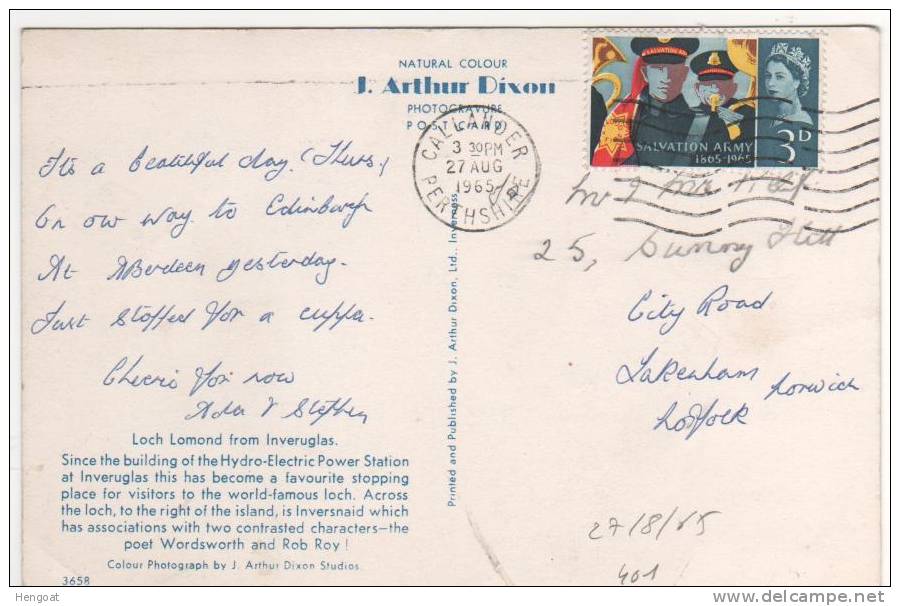 NATURAL COLOUR
J. Arthur Dixon
PHOTOGRAVURE
POST CARD
It's a beautiful day (Thurs)
On our way to Edinburgh
At Aberdeen yesterday.
Just stopped for a cuppa.
Cheerio for now
Ada & Stephen
Loch Lomond from Inveruglas.
Since the building of the Hydro-Electric Power Station
at Inveruglas this has become a favourite stopping
place for visitors to the world-famous loch. Across
the loch, to the right of the island, is Inversnaid which
has associations with two contrasted characters—the
poet Wordsworth and Rob Roy!
Colour Photograph by J. Arthur Dixon Studios.
3658
Printed and Published by J. Arthur Dixon, Ltd., Inverness
CALLANDER
3 30PM
27 AUG
1965
PERTHSHIRE
SALVATION ARMY
SALVATION ARMY
1865-1965
3D
Mr & Mrs
25, Sunny Hill
City Road
Lakenham Norwich
Norfolk
27/8/65
401
Hengoat
www.delcampe.net